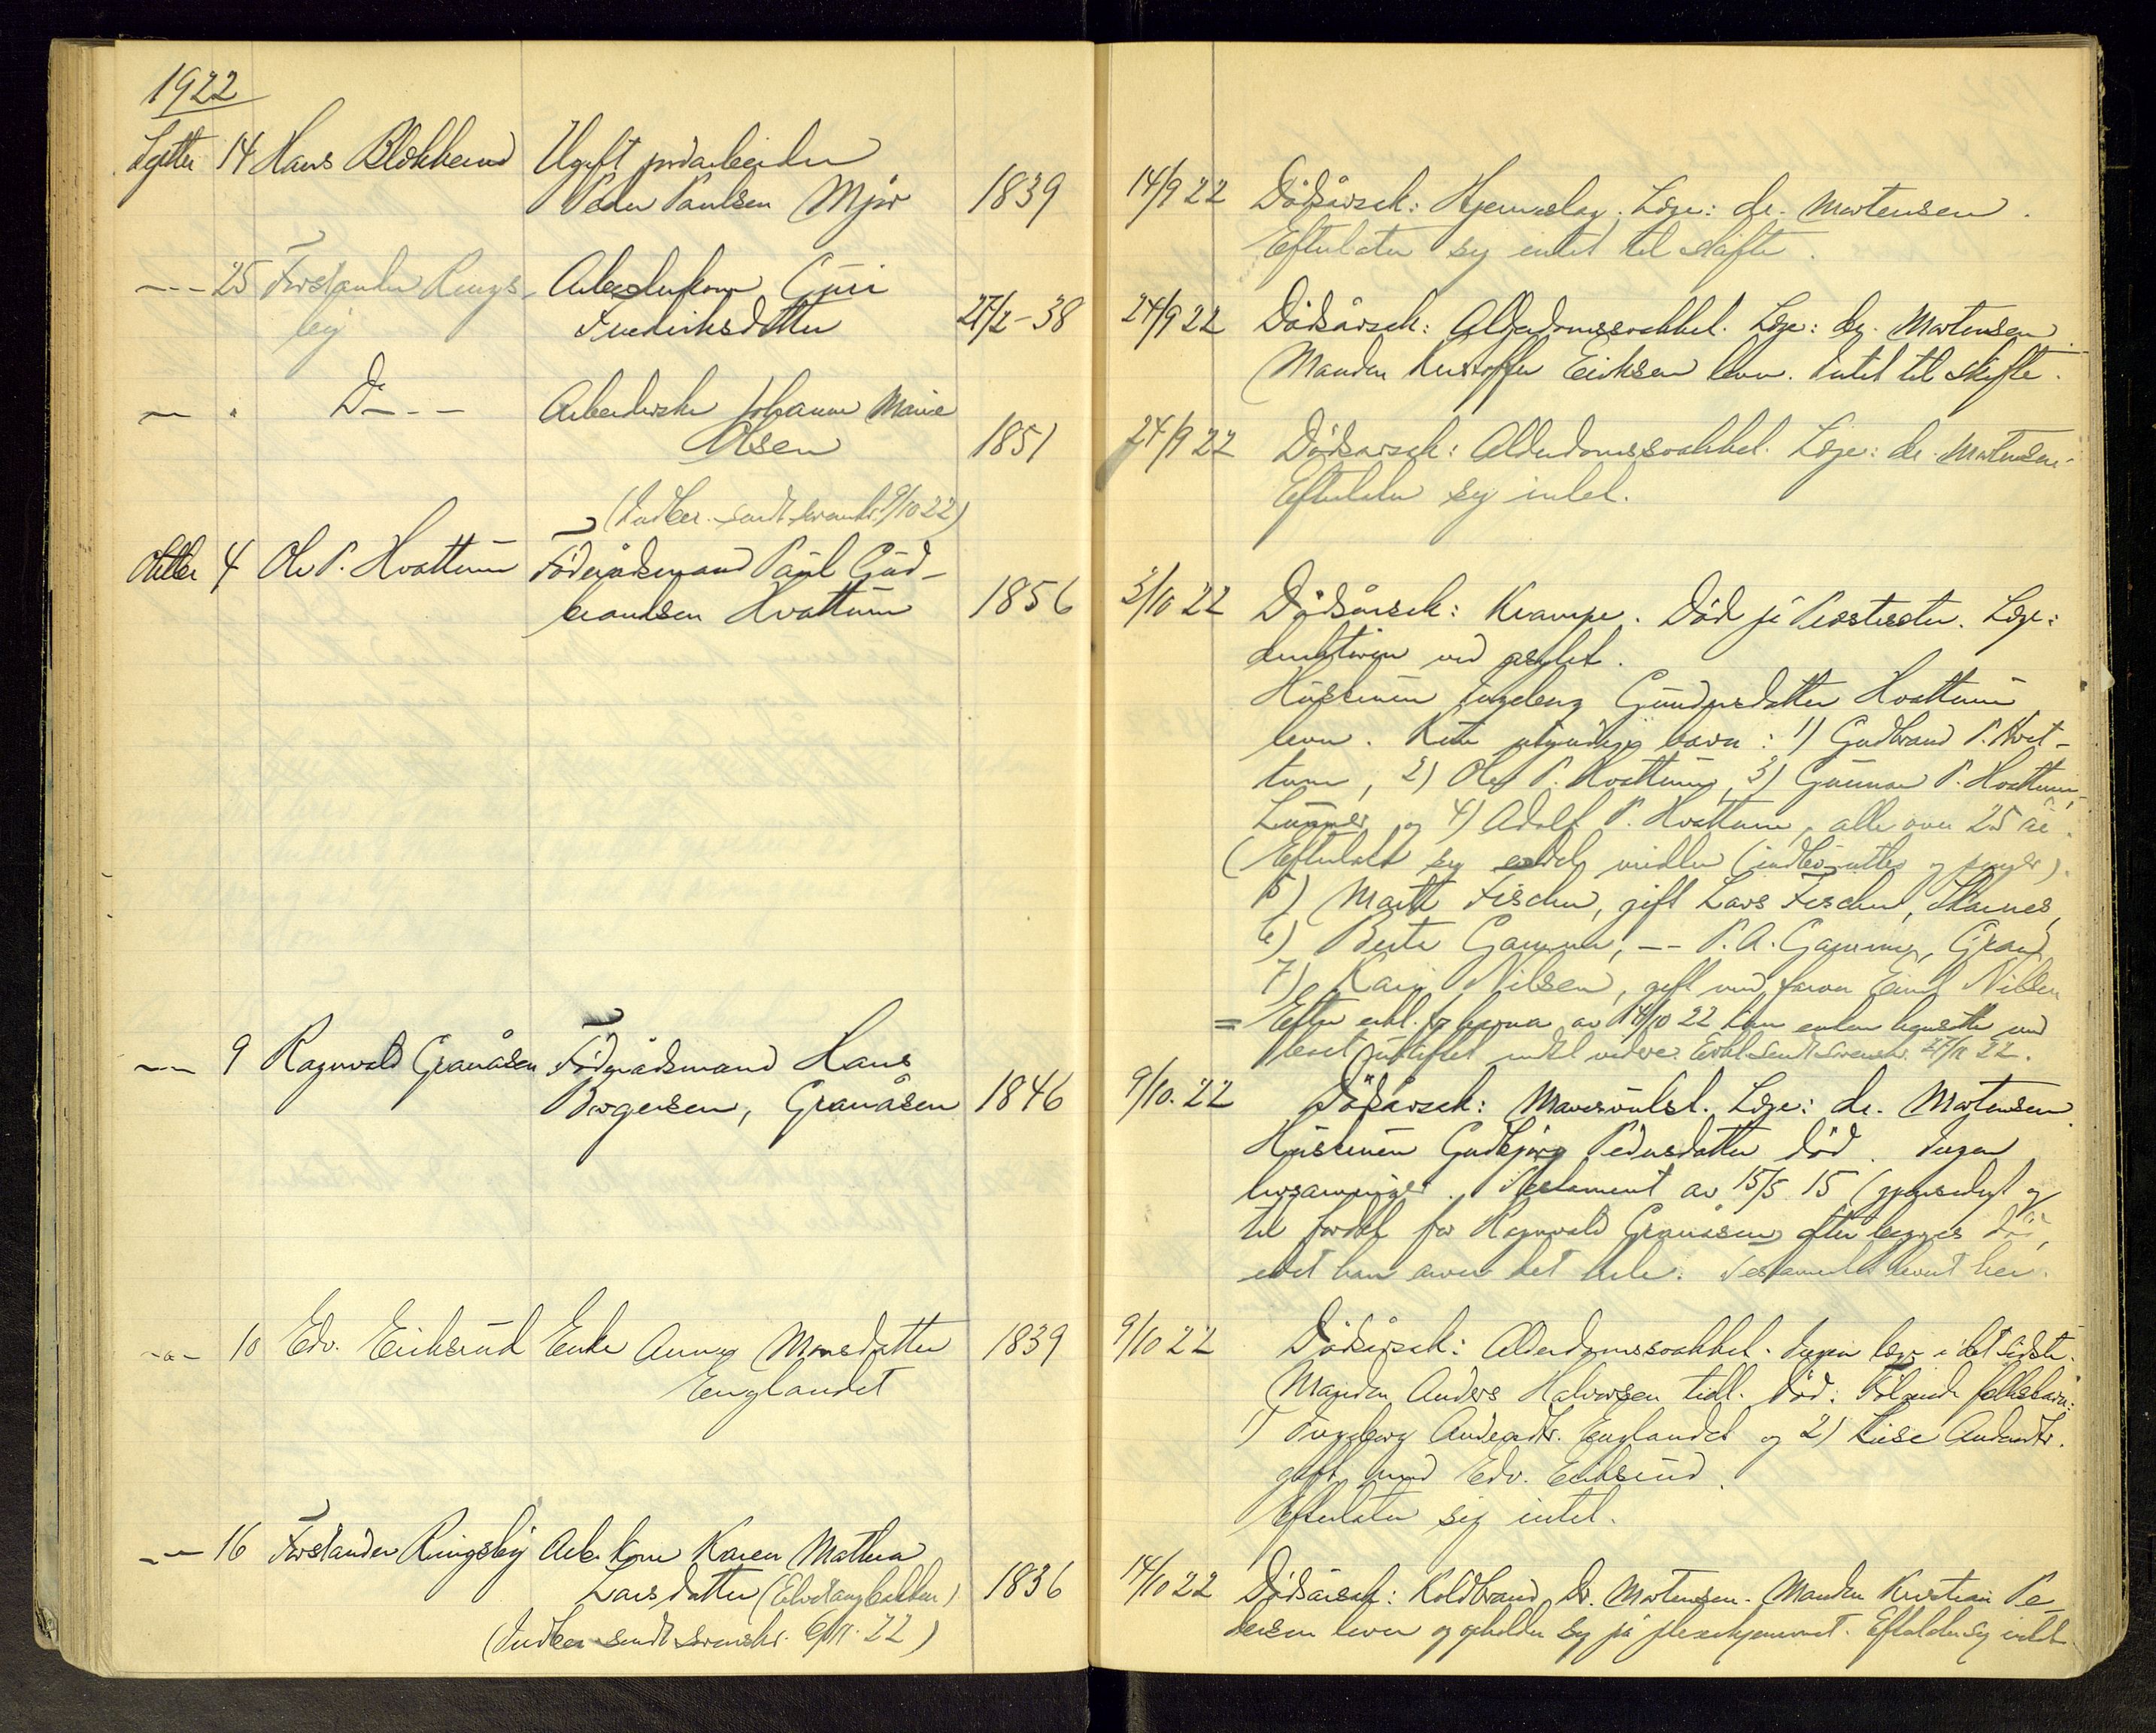 1922
Septbr 14 Hans Blekkerud Ugift jordarbeider
Peder Paulsen Mjør 1839 14/9 22 Dødsårsak: Hjerneslag. Læge: dr. Mortensen.
Efterlater sig intet til skifte.
— 25 Forstander Rings- Arbeiderkone Guri
by Fredriksdatter 27/2-38 24/9 22 Dødsårsak: Alderdomssvakhet. Læge: dr. Mortensen.
Manden Kristoffer Eriksen lever. Intet til skifte.
— " Do — Arbeiderske Johanne Marie
Olsen 1851 24/9 22 Dødsårsak: Alderdomssvakhet. Læge: dr. Mortensen.
Efterlater sig intet.
(Indber. sendt sorenskr. 9/10 22)
Oktbr 4 Ole P. Hvattum Føderådsmand Paul Gud-
brandsen Hvattum 1856 3/10 22 Dødsårsak: Krampe. Død på Læge:
ved asylet.
Hustruen Ingeborg Gundersdatter Hvattum
lever. Kun myndige barn: 1) Gudbrand P. Hvat-
tum, 2) Ole P. Hvattum, 3) Gunnar P. Hvattum,
Lunner og 4) Adolf P. Hvattum, alle over 25 år.
(Efterlatt sig endel midler (indbo og penger).
5) Marthe Fischer, gift Lars Fischer, Skarnes,
6) Berte Gamme, — P. A. Gamme, Gran
7) Kari Nilsen, gift med Einar Nilsen
= Efter erkl. fra barna av 14/10 22 kan enken hensitte med
boet uskiftet indtil videre. Erkl. sendt sorenskr. 27/11 22.
— 9 Ragnvald Granåsen Føderådsmand Hans
Borgersen, Granåsen 1846 9/10. 22 Dødsårsak: Mavesvulst. Læge: dr. Mortensen.
Hustruen Gudbjørg Pedersdatter død. Ingen
livsarvinger. Testament av 15/5 15 (gjensidig og
til fordel for Ragnvald Granåsen efter begges død,
idet han arver det hele. Testamentet bevart her.
— 10 Edv. Eriksrud Enke Anne Monsdatter 1839 9/10 22 Dødsårsak: Alderdomssvakhet. Ingen læge i det sidste.
Englandet Manden Anders Halvorsen tidl. død. Følgende fællesbarn:
1) Ingeborg Andersdtr. Englandet og 2) Lise Andersdtr.
gift med Edv. Eriksrud.
Efterlater sig intet.
— 16 Forstander Ringsby Arb. kone Karen Mathea
Larsdatter (Elvetangbakken) 1836 14/10 22 Dødsårsak: Koldbrand. Dr. Mortensen. Manden Kristian Pe-
(Indber. sendt sorenskr. 6/11. 22) dersen lever og opholder sig på pleiehjemmet. Efterlater sig intet.